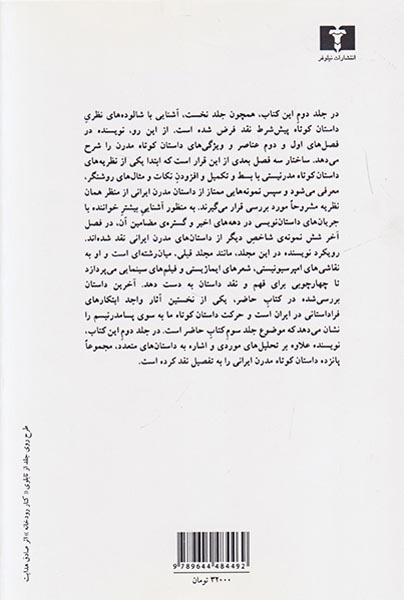 انتشارات نیلوفر
در جلد دوم این کتاب، همچون جلد نخست، آشنایی با شالوده‌های نظریِ
داستان کوتاه پیش‌شرط نقد فرض شده است. از این رو، نویسنده در
فصل‌های اول و دوم عناصر و ویژگی‌های داستان کوتاه مدرن را شرح
می‌دهد. ساختار سه فصل بعدی از این قرار است که ابتدا یکی از نظریه‌های
داستان کوتاه مدرنیستی با بسط و تکمیل و افزودنِ نکات و مثال‌های روشنگر،
معرفی می‌شود و سپس نمونه‌هایی ممتاز از داستان مدرن ایرانی از منظر همان
نظریه مشروحاً مورد بررسی قرار می‌گیرند. به منظور آشناییِ بیشترِ خواننده با
جریان‌های داستان‌نویسی در دهه‌های اخیر و گستره‌ی مضامین آن، در فصل
آخر شش نمونه‌ی شاخص دیگر از داستان‌های مدرن ایرانی نقد شده‌اند.
رویکرد نویسنده در این مجلد، مانند مجلد قبلی، میان‌رشته‌ای است و او به
نقاشی‌های امپرسیونیستی، شعرهای ایماژیستی و فیلم‌های سینمایی می‌پردازد
تا چهارچوبی برای فهم و نقد داستان به دست دهد. آخرین داستان
بررسی‌شده در کتاب حاضر، یکی از نخستین آثار واجد ابتکارهای
فراداستانی در ایران است و حرکت داستان کوتاه ما به سوی پسامدرنیسم را
نشان می‌دهد که موضوع جلد سوم کتاب حاضر است. در جلد دومِ این کتاب،
نویسنده علاوه بر تحلیل‌های موردی و اشاره به داستان‌های متعدد، مجموعاً
پانزده داستان کوتاه مدرن ایرانی را به تفصیل نقد کرده است.
طرح روی جلد از تابلوی «کنار رودخانه» اثر صادق هدایت
9 789644 484492
۳۲۰۰۰ تومان